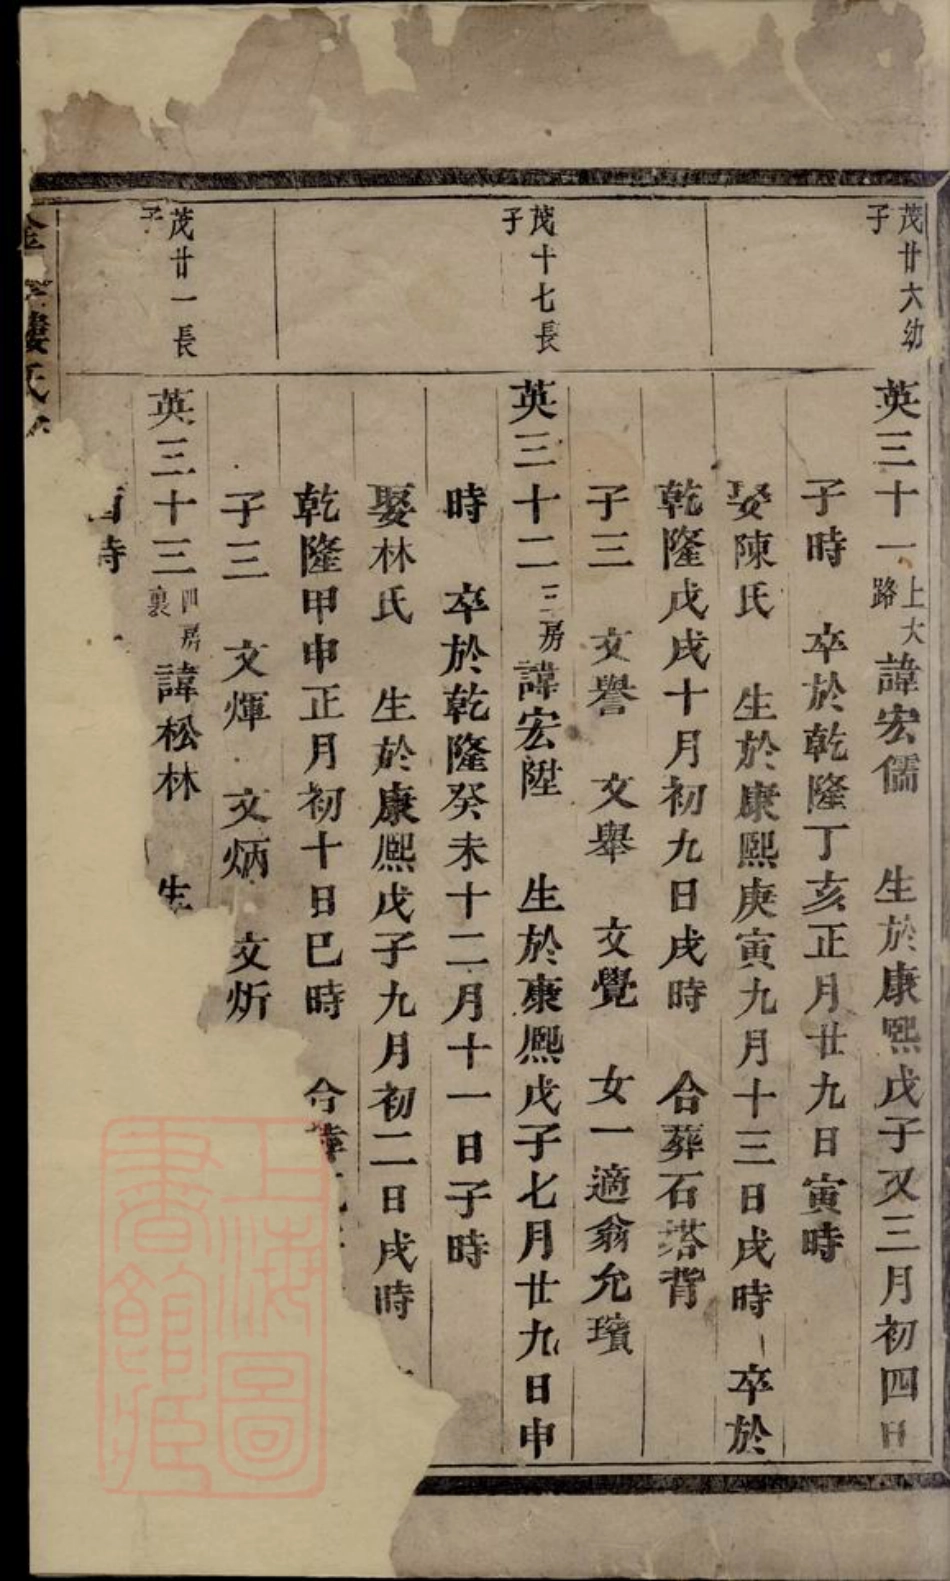 茂廿六幼
子
英三十一上大路諱宏儒 生於康熙戊子又三月初四日
子時 卒於乾隆丁亥正月廿九日寅時
娶陳氏 生於康熙庚寅九月十三日戌時 卒於
乾隆戊戌十月初九日戌時 合葬石塔背
子三 文譽 文舉 文覺 女一適翁允璸
茂十七長
子
英三十二三房諱宏陞 生於康熙戊子七月廿九日申
時 卒於乾隆癸未十二月十一日子時
娶林氏 生於康熙戊子九月初二日戌時
乾隆甲申正月初十日巳時 合葬
子三 文煇 文炳 文炘
茂廿一長
子
英三十三四房裏諱松林 生
時
金 婁氏
上海圖書館藏